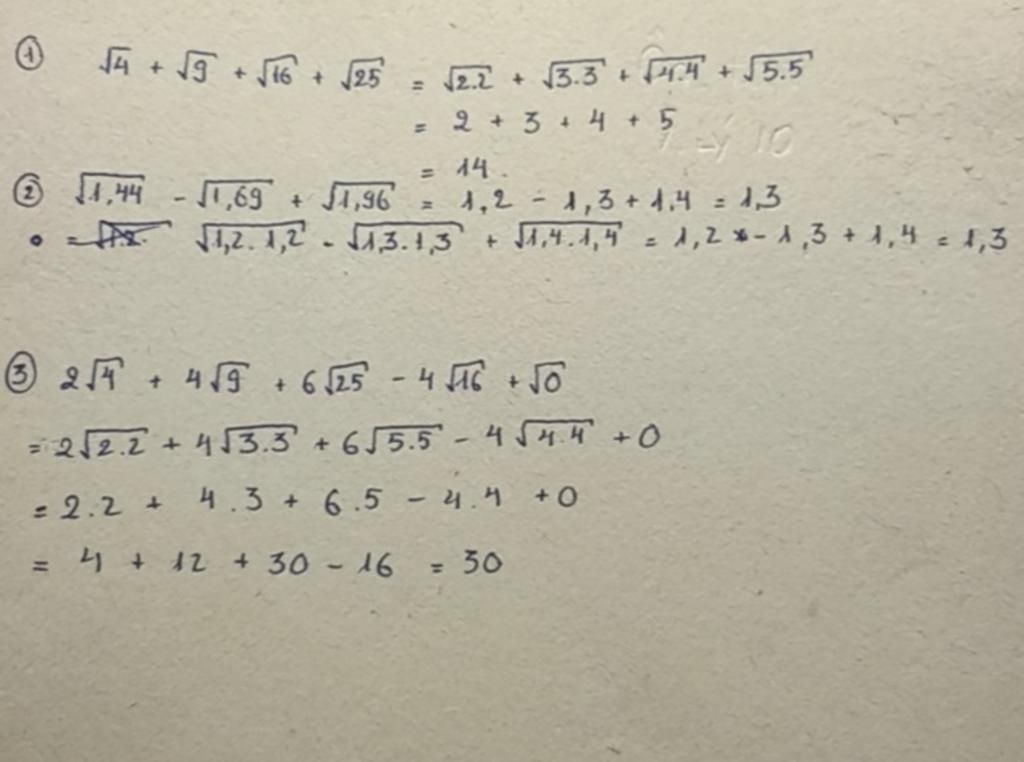 ① √4 + √9 + √16 + √25 = √2.2 + √3.3 + √4.4 + √5.5
= 2 + 3 + 4 + 5
= 14.
② √1,44 - √1,69 + √1,96 = 1,2 - 1,3 + 1,4 = 1,3
= √1,2.1,2 - √1,3.1,3 + √1,4.1,4 = 1,2 - 1,3 + 1,4 = 1,3
③ 2√4 + 4√9 + 6√25 - 4√16 + √0
= 2√2.2 + 4√3.3 + 6√5.5 - 4√4.4 + 0
= 2.2 + 4.3 + 6.5 - 4.4 + 0
= 4 + 12 + 30 - 16 = 30